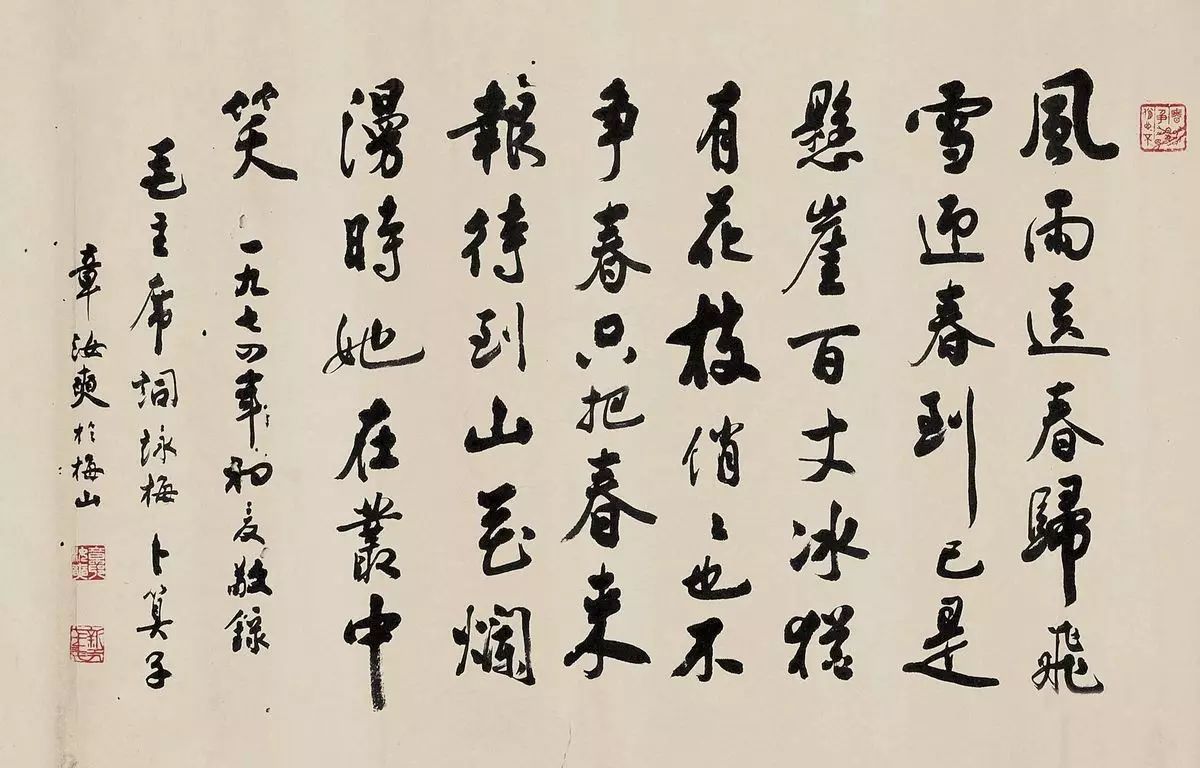 風雨送春歸飛
雪迎春到已是
懸崖百丈冰猶
有花枝俏〻也不
争春只把春来
報待到山花爛
漫時她在叢中
笑 一九七四年初夏敬録
毛主席詞詠梅 卜算子
章汝奭於梅山